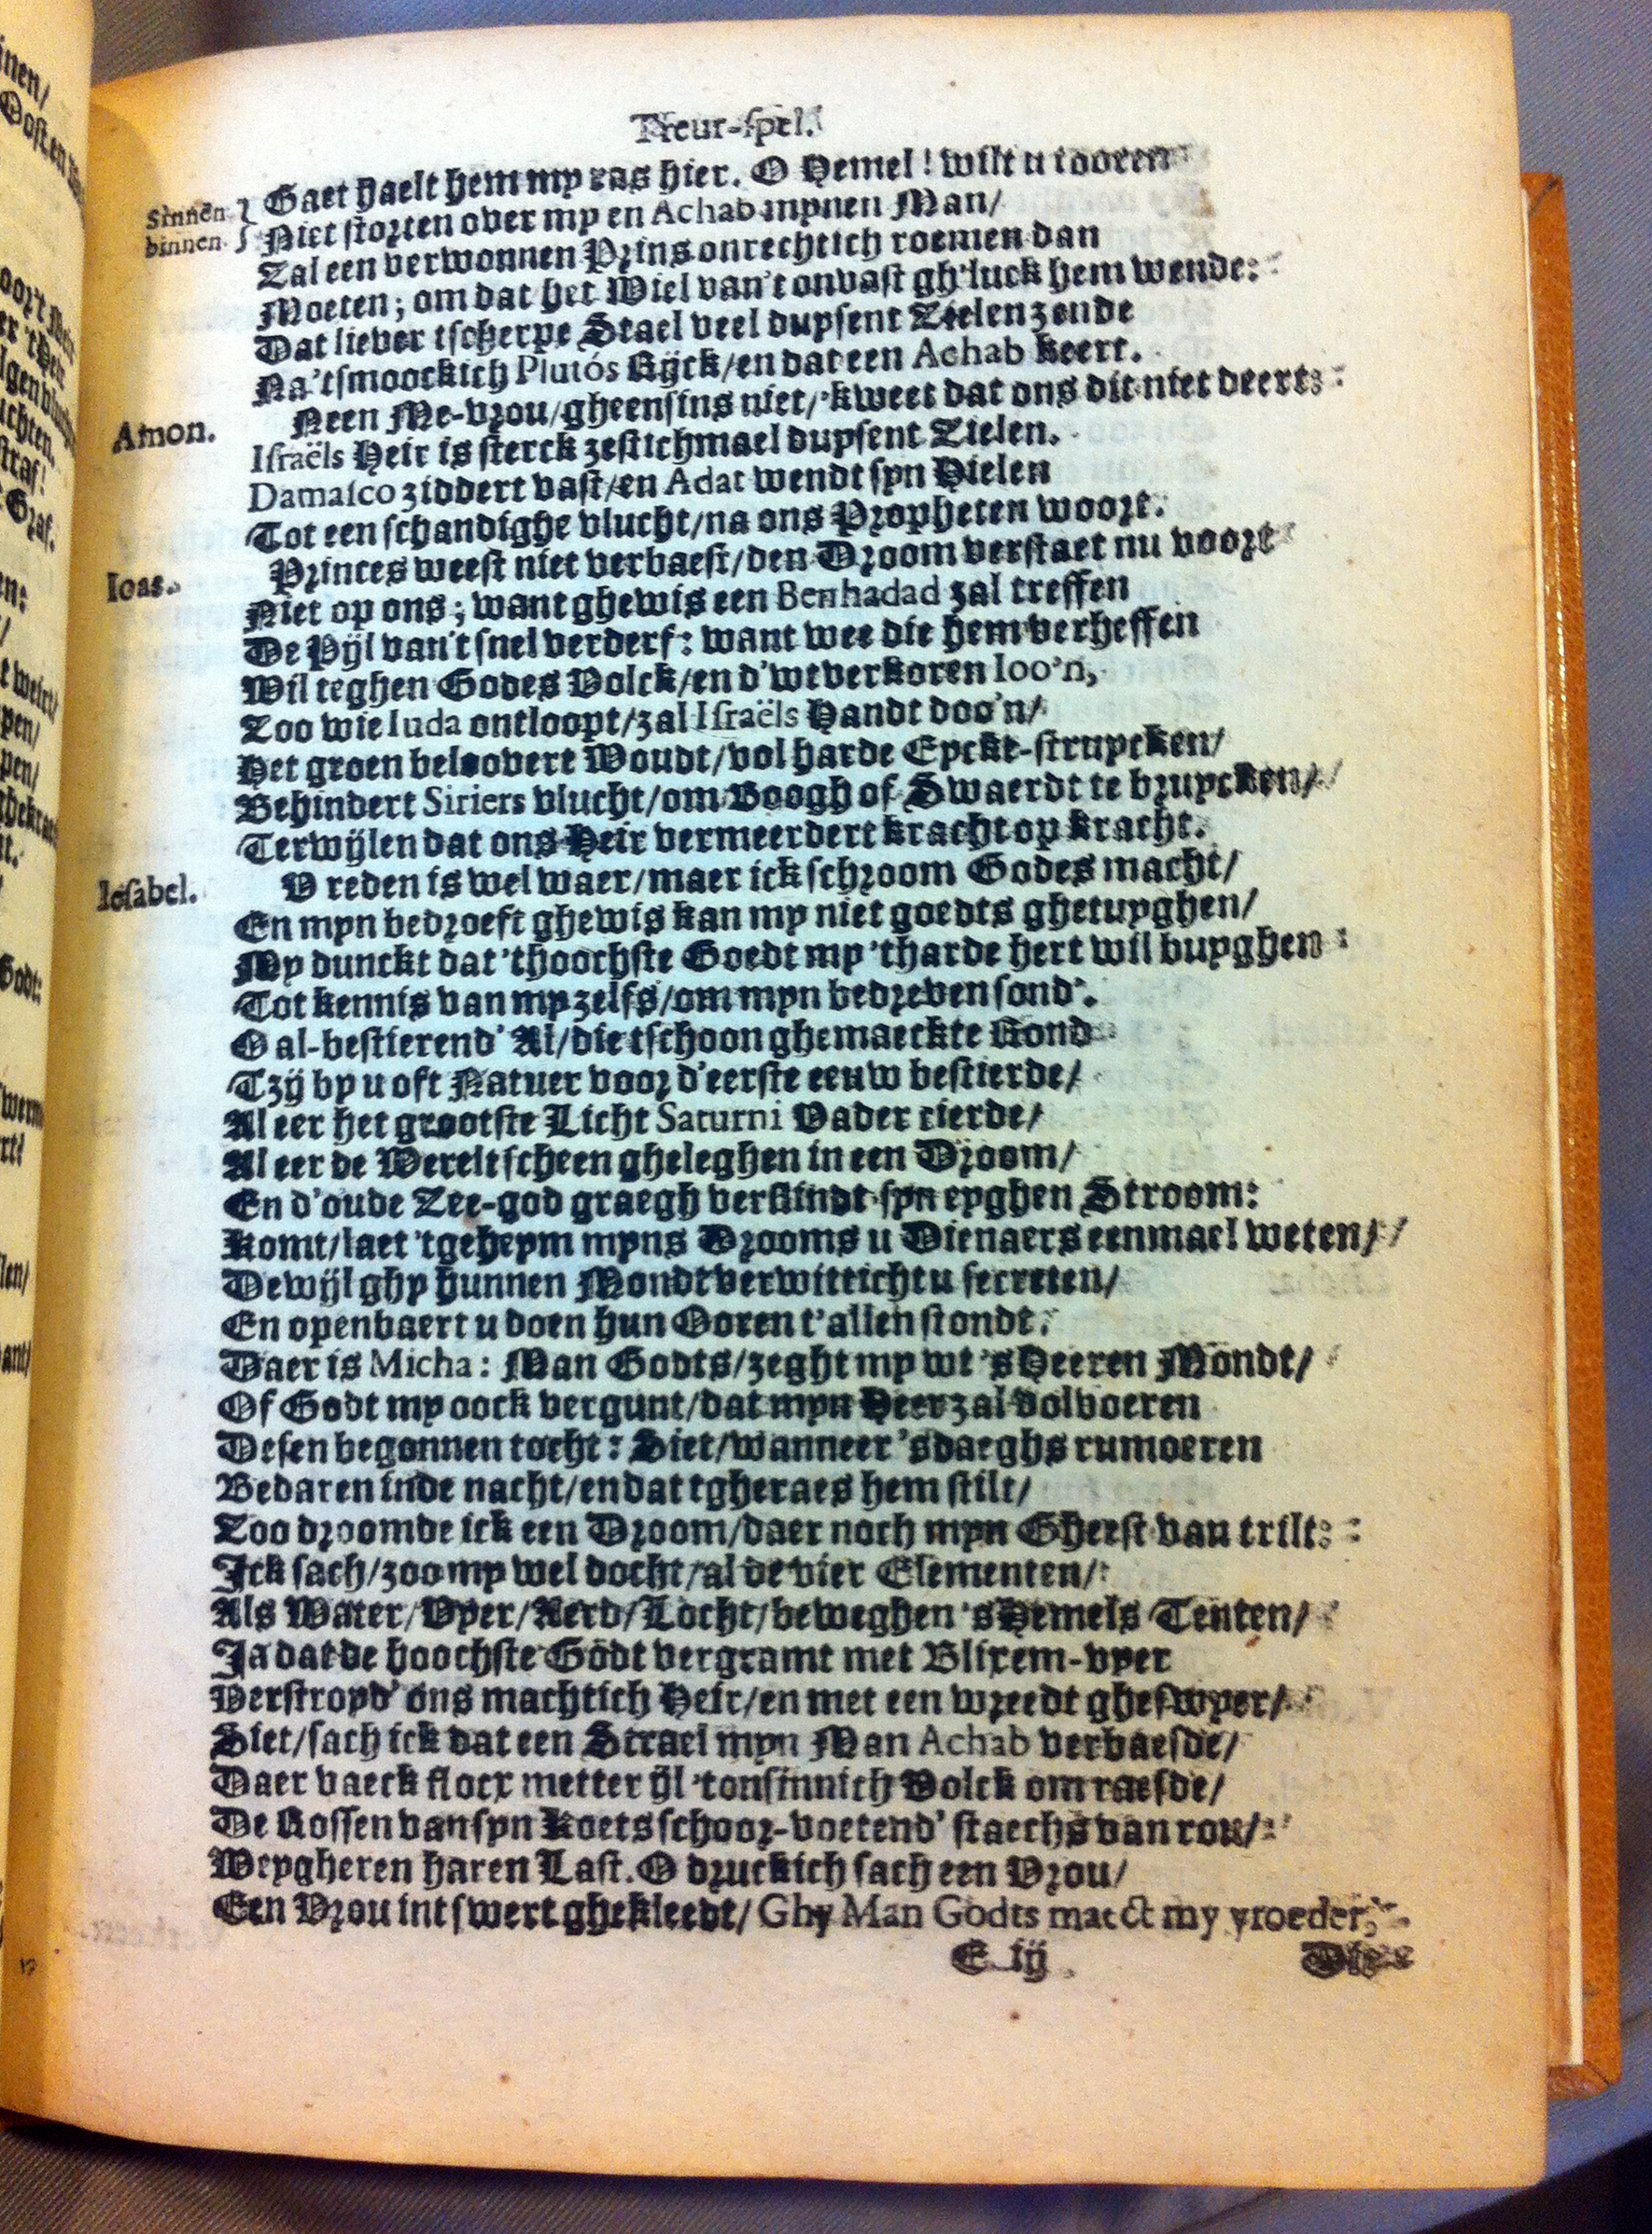 Treur-spel.
Sinnen binnen. Gaet haelt hem my ras hier. O Hemel! wilt u tooren
Niet storten over my en Achab mynen Man/
Zal een verwonnen Prins onrechtich roemen dan
Moeten; om dat het Wiel van't onvast gh'luck hem wende:
Dat liever tscherpe Stael veel duysent Zielen zende
Na'tsmoockich Plutós Rijck/en dat een Achab keert.
Amon. Neen Me-vrou/gheensins niet/'kweet dat ons dit niet deert:
Israëls Heir is sterck zestichmael duysent Zielen.
Damasco ziddert vast/en Adat wendt syn Hielen
Tot een schandighe vlucht/na ons Propheten woort.
Ioas. Princes weest niet verbaest/den Droom verstaet nu voort
Niet op ons; want ghewis een Benhadad zal treffen
De Pijl van't snel verderf: want wee die hem verheffen
Wil teghen Godes Volck/en d'wtverkoren Ioo'n,
Zoo wie Iuda ontloopt/zal Israëls Handt doo'n/
Het groen beloovert Woudt/vol harde Eyckt-struycken/
Behindert Siriers vlucht/om Boogh of Swaerdt te bruycken/
Terwijlen dat ons Heir vermeerdert kracht op kracht.
Iesabel. V reden is wel waer/maer ick schroom Godes macht/
En myn bedroeft ghewis kan my niet goedts ghetuyghen/
My dunckt dat 'thoochste Goedt my 'tharde hert wil buyghen:
Tot kennis van my zelfs/om myn bedreven sond'.
O al-bestierend' Al/die tschoon ghemaeckte Rond
Tzy by u oft Natuer voor d'eerste eeuw bestierde/
Al eer het grootste Licht Saturni Vader cierde/
Al eer de Werelt scheen gheleghen in een Droom/
En d'oude Zee-god graegh verslindt syn eyghen Stroom:
Komt/laet 'tgeheym myns Drooms u Dienaers eenmael weten/
Dewijl ghy hunnen Mondt verwitticht u secreten/
En openbaert u doen hun Ooren t'allen stondt.
Daer is Micha: Man Godts/zeght my wt 's Heeren Mondt/
Of Godt my oock vergunt/dat myn Heer zal volvoeren
Desen begonnen tocht: Siet/wanneer 'sdaeghs rumoeren
Bedaren inde nacht/en dat tgheraes hem stilt/
Zoo droomde ick een Droom/daer noch myn Gheest van trilt:
Ick sach/zoo my wel docht/al de vier Elementen/
Als Water/Vyer/Aerd/Locht/beweghen 's Hemels Tenten/
Ja dat de hoochste Godt vergramt met Blixem-vyer
Verstroyd' ons machtich Heir/en met een wreedt gheswyer/
Siet/sach ick dat een Strael myn Man Achab verbaesde/
Daer vaeck flocx metter ijl 'tonsinnich Volck om raesde/
De Rossen van syn Koets schoor-voetend' staechs van rou/
Weygheren haren Last. O druckich sach een Vrou/
Een Vrou int swert ghekleedt/ Ghy Man Godts maect my vroeder,
E iij